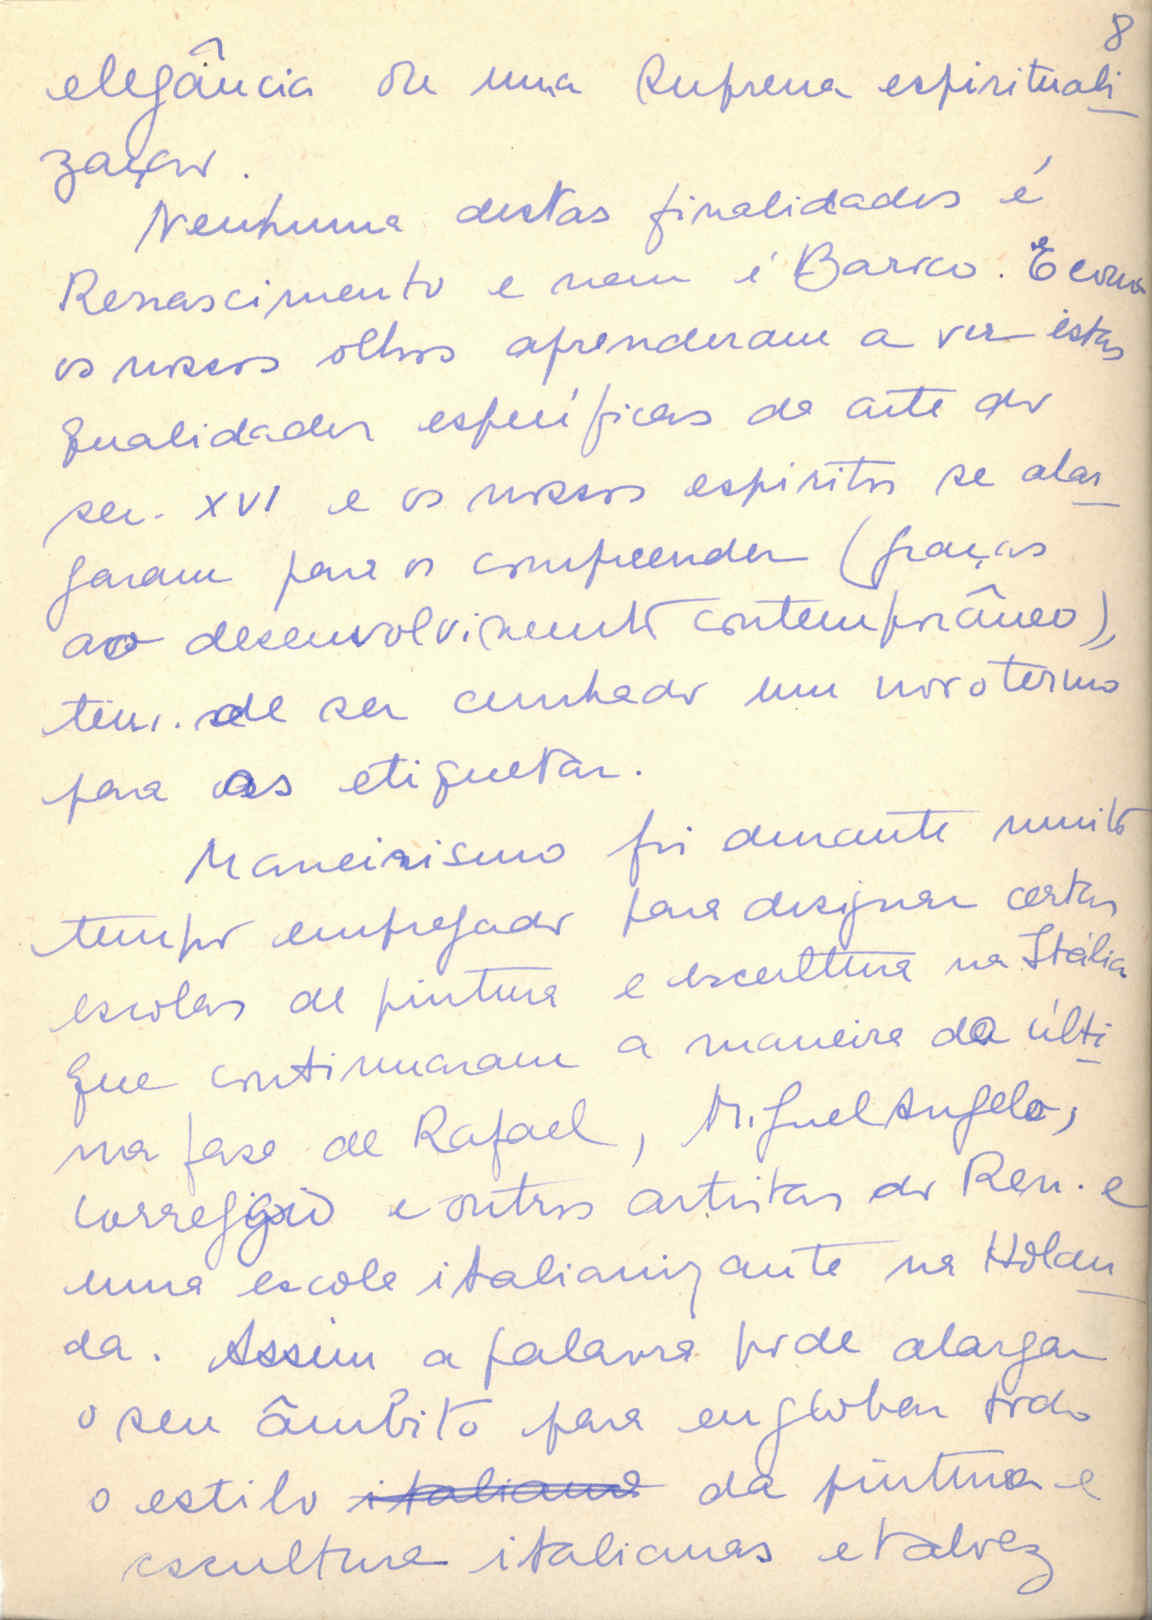 8
elegância ou uma suprema espirituali-
zação.
Nenhuma destas finalidades é
Renascimento e nem é Barroco. E como
os nossos olhos aprenderam a ver estas
qualidades específicas da arte do
séc. XVI e os nossos espíritos se alar-
garam para os compreender (graças
ao desenvolvimento contemporâneo),
tem. de ser cunhado um novo termo
para as etiquetar.
Maneirismo foi durante muito
tempo empregado para designar certas
escolas de pintura e escultura na Itália
que continuaram a maneira da últi-
ma fase de Rafael, Miguel Angelo,
Correggio e outros artistas do Ren. e
uma escola italianizante na Holan-
da. Assim a palavra pode alargar
o seu âmbito para englobar todo
o estilo italiano da pintura e
escultura italianas e talvez